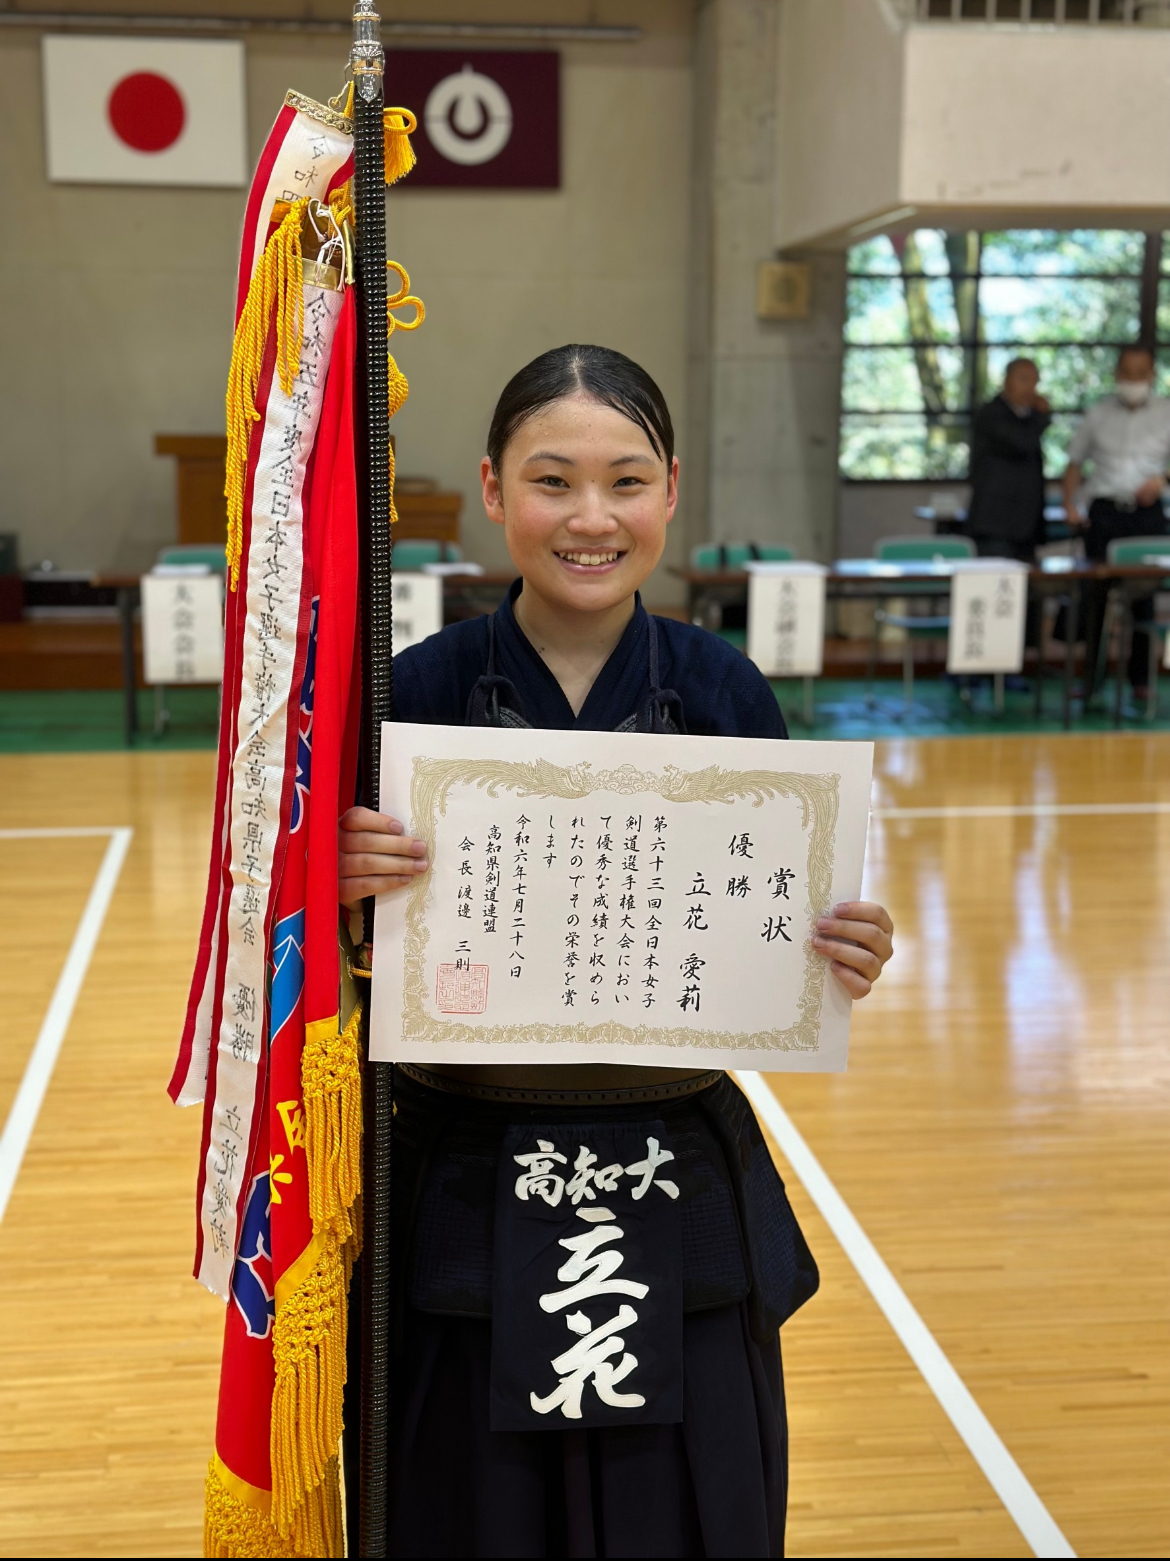 賞状
優勝
立花 愛莉
第六十三回全日本女子
剣道選手権大会におい
て優秀な成績を収めら
れたのでその栄誉を賞
します
令和六年七月二十八日
高知県剣道連盟
会長 渡邊 三則
高知大
立花
令和五年度全日本女子選手権大会高知県予選会 優勝 立花愛莉
令和四
大会会長
大会副会長
大会
委員長